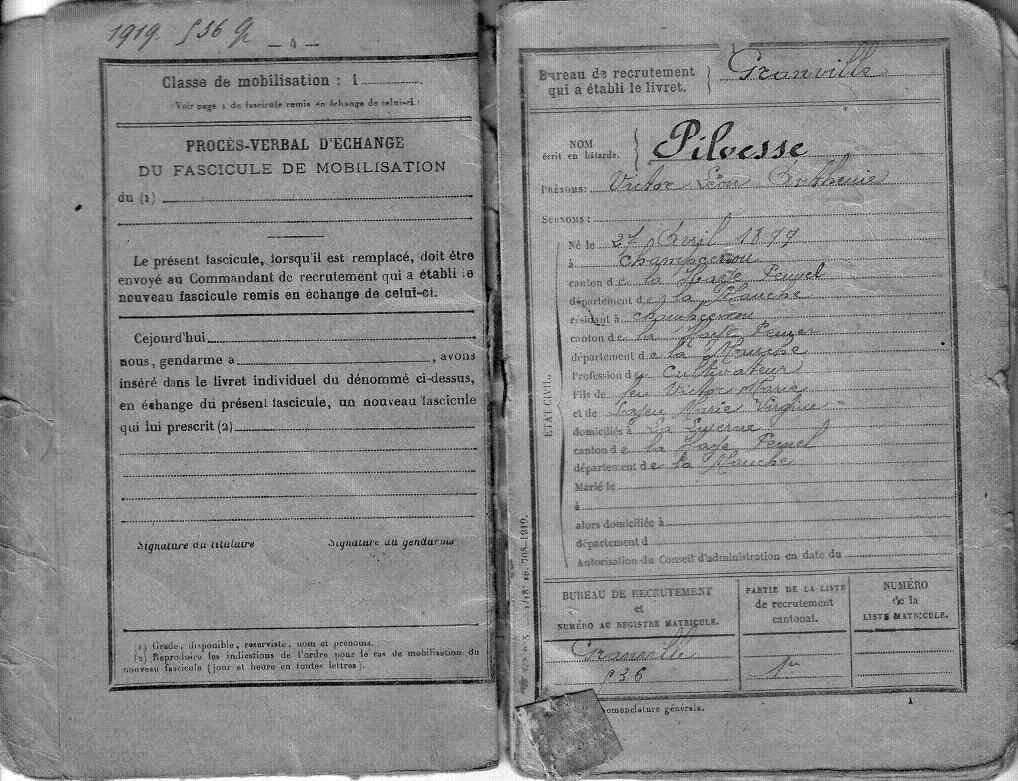 1919. 536 G
— 4 —
Classe de mobilisation : 1
(Voir page 1 du fascicule remis en échange de celui-ci.)
PROCÈS-VERBAL D'ÉCHANGE
DU FASCICULE DE MOBILISATION
du (1)
Le présent fascicule, lorsqu'il est remplacé, doit être
envoyé au Commandant de recrutement qui a établi le
nouveau fascicule remis en échange de celui-ci.
Cejourd'hui
nous, gendarme à , avons
inséré dans le livret individuel du dénommé ci-dessus,
en échange du présent fascicule, un nouveau fascicule
qui lui prescrit (2)
Signature du titulaire Signature du gendarme
1) Grade, disponible, réserviste, nom et prénoms.
(2) Reproduire les indications de l'ordre pour le cas de mobilisation du
nouveau fascicule (jour et heure en toutes lettres).
Bureau de recrutement
qui a établi le livret. } Granville
NOM
écrit en bâtarde. } Pilvesse
PRÉNOMS: Victor Léon
SURNOMS:
Né le 27 Avril 1899
à Champcervon
canton de la Haye Pesnel
département de la Manche
résidant à Champcervon
canton de la Haye Pesnel
département de la Manche
Profession de Cultivateur
Fils de feu Victor Marie
et de Marie Virginie
domiciliés à La Lucerne
canton de la Haye Pesnel
département de la Manche
Marié le
à
alors domiciliée à
département d
Autorisation du Conseil d'administration en date du
ÉTAT CIVIL.
BUREAU DE RECRUTEMENT
et
NUMÉRO AU REGISTRE MATRICULE.
PARTIE DE LA LISTE
de recrutement
cantonal.
NUMÉRO
de la
LISTE MATRICULE.
Granville
536
1re
nomenclature générale.
1